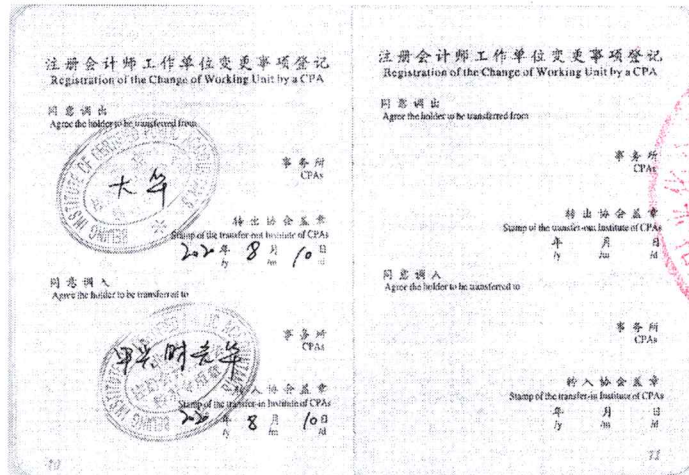 注册会计师工作单位变更事项登记
Registration of the Change of Working Unit by a CPA
同意调出
Agree the holder to be transferred from
大华
事务所
CPAs
转出协会盖章
Stamp of the transfer-out Institute of CPAs
2020年8月10日
/y /m /d
同意调入
Agree the holder to be transferred to
事务所
CPAs
转入协会盖章
Stamp of the transfer-in Institute of CPAs
2020年8月10日
/y /m /d
10
注册会计师工作单位变更事项登记
Registration of the Change of Working Unit by a CPA
同意调出
Agree the holder to be transferred from
事务所
CPAs
转出协会盖章
Stamp of the transfer-out Institute of CPAs
年 月 日
/y /m /d
同意调入
Agree the holder to be transferred to
事务所
CPAs
转入协会盖章
Stamp of the transfer-in Institute of CPAs
年 月 日
/y /m /d
11